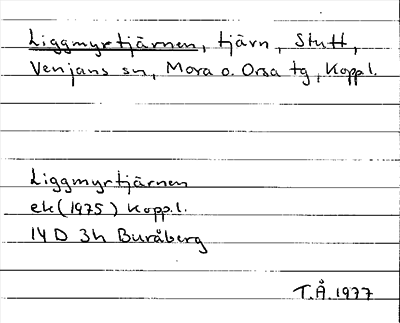 Liggmyrtjärnen, tjärn, Stutt,
Venjans sn, Mora o. Orsa tg, Koppl.
Liggmyrtjärnen
ek (1975) Koppl.
14 D 3h Buråberg
T.Å. 1977